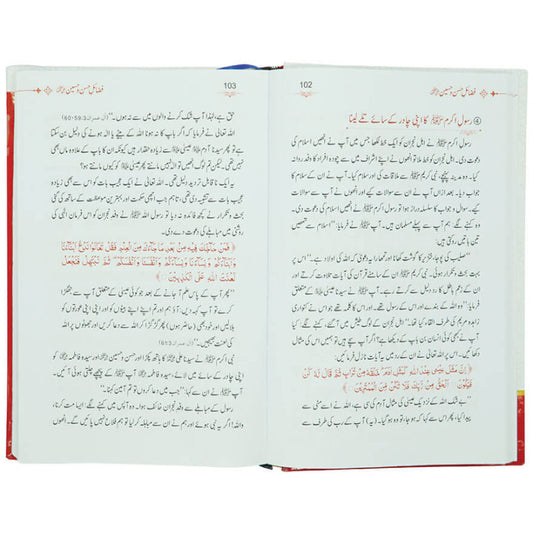 فضائل حسن و حسین
102
④ رسول اکرم ﷺ کا اپنی چادر کے سائے تلے لینا
رسول اکرم ﷺ نے اہل نجران کو ایک خط لکھا جس میں آپ نے انھیں اسلام کی
دعوت دی۔ اہل نجران کو خط ملا تو انھوں نے اپنے اشراف میں سے چودہ افراد کا وفد روانہ
کیا۔ وہ مدینہ پہنچے، نبی کریم ﷺ نے ملاقات کی اور اسلام کی
جواب دیا۔ اس کے بعد ازاں آپ نے ان سے سوالات کیے اور انھوں نے آپ سے سوالات
کیے۔ سوال و جواب کا سلسلہ دراز ہوا۔ آپ ﷺ نے انھیں اسلام کی دعوت دی،
کہنے لگے: ہم آپ سے پہلے مسلمان ہیں۔ آپ نے فرمایا: تمھیں اسلام سے
تین باتیں روکتی ہیں:
”صلیب کی پوجا، خنزیر کا گوشت کھانا اور یہ دعویٰ کرنا کہ اللہ کی اولاد ہے۔“ اس پر
بہت بحث و تکرار ہوئی۔ نبی ﷺ ان کے سامنے قرآن کی آیات تلاوت کرتے اور
ان کے باطل کا رد دلیل سے کرتے رہے۔ آپ ﷺ نے سیدنا عیسیٰ کے متعلق
فرمایا: ”وہ اللہ کے بندے اور اس کے رسول تھے۔ وہ اللہ کا کلمہ تھے جو اس نے کنواری
زاہدہ مریم کی طرف القا کیا تھا۔“ اہل نجران کے لوگ طیش میں آ گئے، کہنے لگے: کیا
آپ نے کبھی کوئی انسان بن باپ کے دیکھا ہے؟ اگر آپ سچے ہیں تو ہمیں اس کی مثال
دیں۔ اس پر اللہ تعالیٰ نے ان کے رد میں یہ آیات نازل فرمائیں:
﴿ إِنَّ مَثَلَ عِيسَىٰ عِندَ اللَّهِ كَمَثَلِ آدَمَ ۖ خَلَقَهُ مِن تُرَابٍ ثُمَّ قَالَ لَهُ كُن
فَيَكُونُ ۝ الْحَقُّ مِن رَّبِّكَ فَلَا تَكُن مِّنَ الْمُمْتَرِينَ ﴾
”بے شک اللہ کے نزدیک عیسیٰ کی مثال آدم کی سی ہے، اللہ نے اسے مٹی سے
پیدا کیا، پھر اس سے کہا کہ ہو جا، تو وہ ہو گیا۔ (یہ) آپ کے رب کی طرف سے
103
فضائل حسن و حسین
حق ہے، لہٰذا آپ شک کرنے والوں میں سے نہ ہوں۔“
اللہ تعالیٰ نے فرمایا کہ اگر باپ کا نہ ہونا اللہ کے بیٹے یا الٰہ ہونے کی دلیل بن سکتا
ہے تو آدم علیہ السلام عیسیٰ علیہ السلام سے زیادہ حقدار ہیں کیونکہ ان کا باپ کے علاوہ ماں بھی
نہیں تھی۔ لیکن تم لوگ انھیں الٰہ نہیں مانتے پھر عیسیٰ کو کیوں مانتے ہو؟
یہ ایک ناقابل تردید دلیل تھی۔ اللہ تعالیٰ نے ایک عجیب بات کی وضاحت اس سے بھی زیادہ
عجیب بات سے کی تھی، تاہم جب اچھی حکمت اور بہترین موعظت کے ساتھ کی گئی
بحث و تکرار نے کچھ فائدہ نہ دیا تو رسول اللہ ﷺ نے وفد نجران کو اس فرمان الٰہی کی
روشنی میں مباہلے کی دعوت دے دی۔
﴿ فَمَنْ حَاجَّكَ فِيهِ مِن بَعْدِ مَا جَاءَكَ مِنَ الْعِلْمِ فَقُلْ تَعَالَوْا نَدْعُ أَبْنَاءَنَا
وَأَبْنَاءَكُمْ وَنِسَاءَنَا وَنِسَاءَكُمْ وَأَنفُسَنَا وَأَنفُسَكُمْ ثُمَّ نَبْتَهِلْ فَنَجْعَل
لَّعْنَتَ اللَّهِ عَلَى الْكَاذِبِينَ ﴾
”پھر آپ کے پاس علم آ جانے کے بعد جو کوئی عیسیٰ کے متعلق آپ سے
جھگڑے تو آپ کہہ دیں: آؤ ہم اور تم اپنے اپنے بیٹوں کو اور اپنی اپنی عورتوں کو
بلائیں اور خود بھی (حاضر ہوں) پھر گڑگڑا کر اللہ سے دعا کریں اور جھوٹوں پر اللہ
کی لعنت بھیجیں۔“
نبی کریم ﷺ نے سیدنا علی کا ہاتھ پکڑا اور حسن و حسین اور سیدہ فاطمہ کو
اپنی چادر کے سائے میں لائے، سیدہ فاطمہ آپ ﷺ کے پیچھے چلتی آئیں۔ آپ
نے ان سے کہا: ”جب میں دعا کروں تو تم آمین کہنا۔“
رسول کے مباہلے سے وفد نجران خائف ہوا۔ وہ آپس میں کہنے لگے: ایسا مت کرنا،
واللہ! اگر یہ نبی ہوئے اور ہم نے ان سے مباہلہ کر لیا تو ہم فلاح نہیں پائیں گے، نہ ہوں